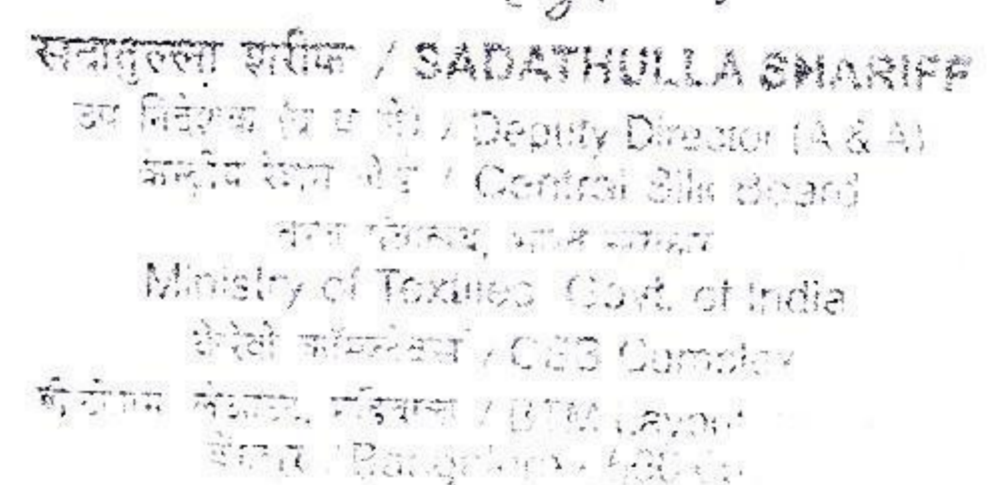 सदातुल्ला शरीफ / SADATHULLA SHARIFF
उप निदेशक / Deputy Director (A & A)
केन्द्रीय रेशम बोर्ड / Central Silk Board
वस्त्र मंत्रालय, भारत सरकार
Ministry of Textiles Govt. of India
कॉम्प्लेक्स / CSB Complex
लेआउट, मडिवाला / BTM Layout
Bangalore